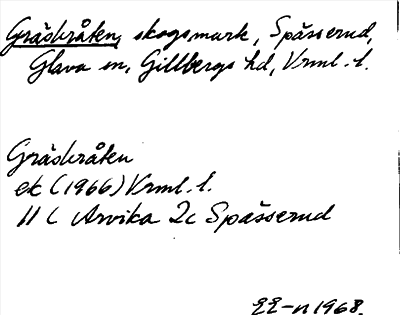 Gräskråken, skogsmark, Spässerud,
Glava sn, Gillbergs hd, Vrml. l.
Gräskråken
ek (1966) Vrml. l.
11 C Arvika 2c Spässerud
EE-n 1968.